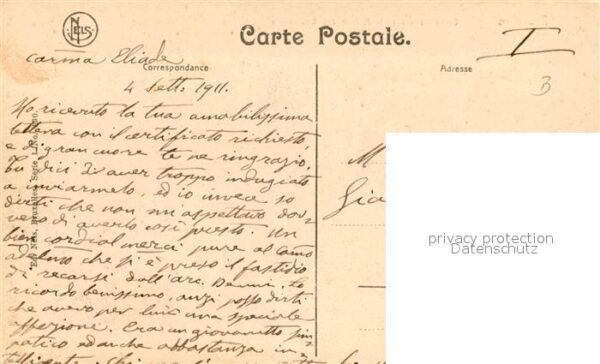 NELS
Carte Postale.
Correspondance
Adresse
I
3
carma Eliade
4 Sett. 1911.
Ho ricevuto la tua amabilissima
lettera con il certificato richiesto,
e di gran cuore te ne ringrazio,
Tu dici di aver troppo indugiato
a inviarmelo, ed io invece so
dirti che non mi aspettavo dav=
vero di averlo così presto. Un
bien cordial merci pure al
che si è preso il fastidio
di recarsi dall'arc. Dammi, lo
ricordo benissimo, anzi posso dirti
che avevo per lui una speciale
affezione. Era un giovanotto sim
patico ed anche abbastanza in=
telligente.
M
Gia
Nels, Bruxelles, Serie
privacy protection
Datenschutz